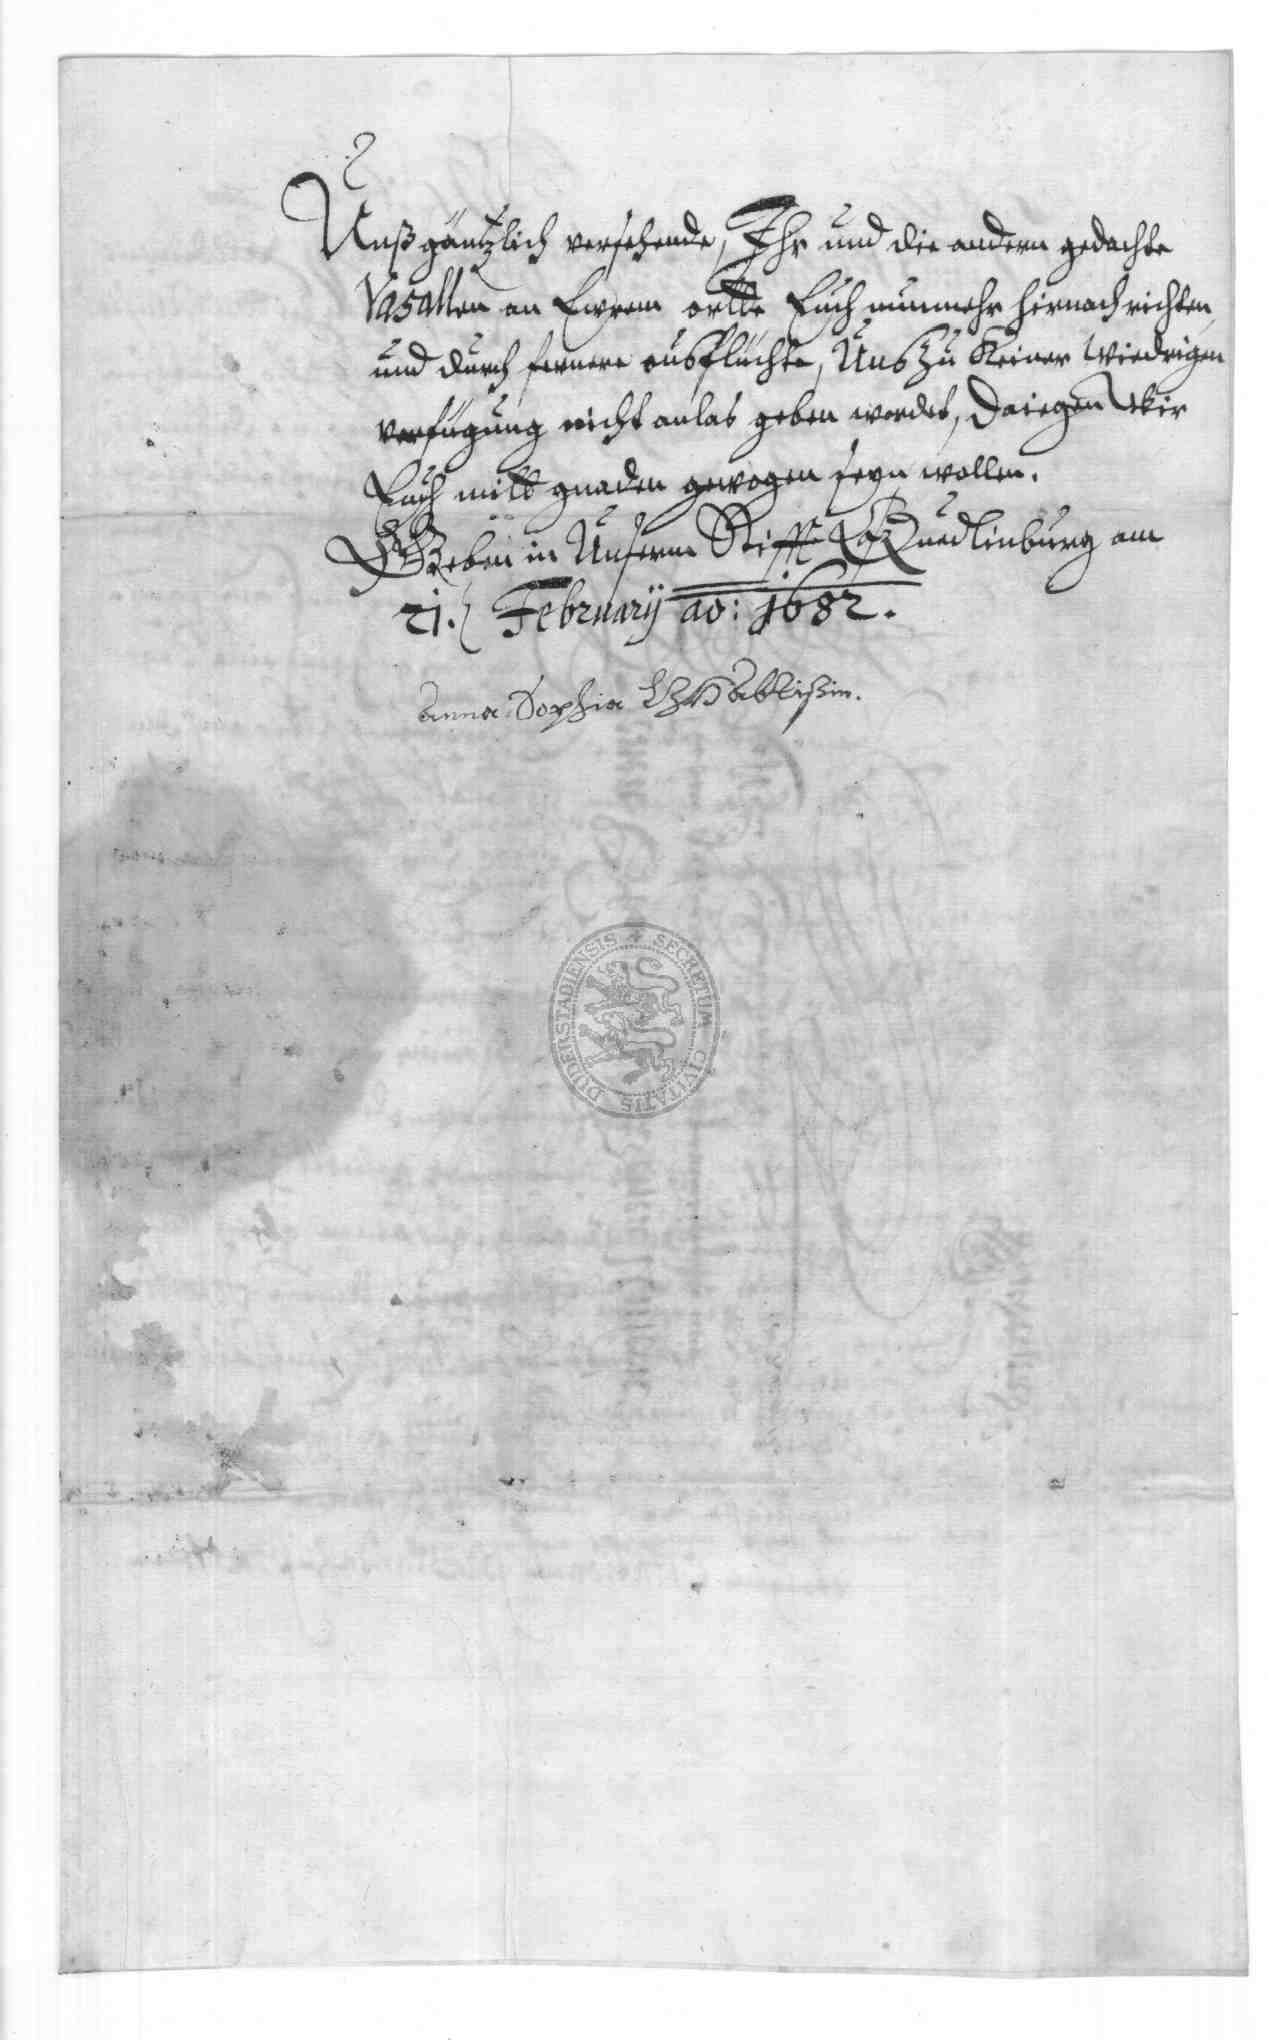 Unß gäntzlich versehende, Ihr und die andern gedachte
Vasallen an Ewrem ortte Euch nunmehr hirnach richten,
und durch fernere ausflüchte, Uns zu keiner wiedrigen
verfügung nicht anlas geben werdet, Daiegen Wir
Euch mitt gnaden gewogen seyn wollen.
Geben in Unserm Stifft Quedlinburg am
21. February ao: 1682.
Anna Sophia Abbtißin.
SECRETUM CIVITATIS DUDERSTADIENSIS